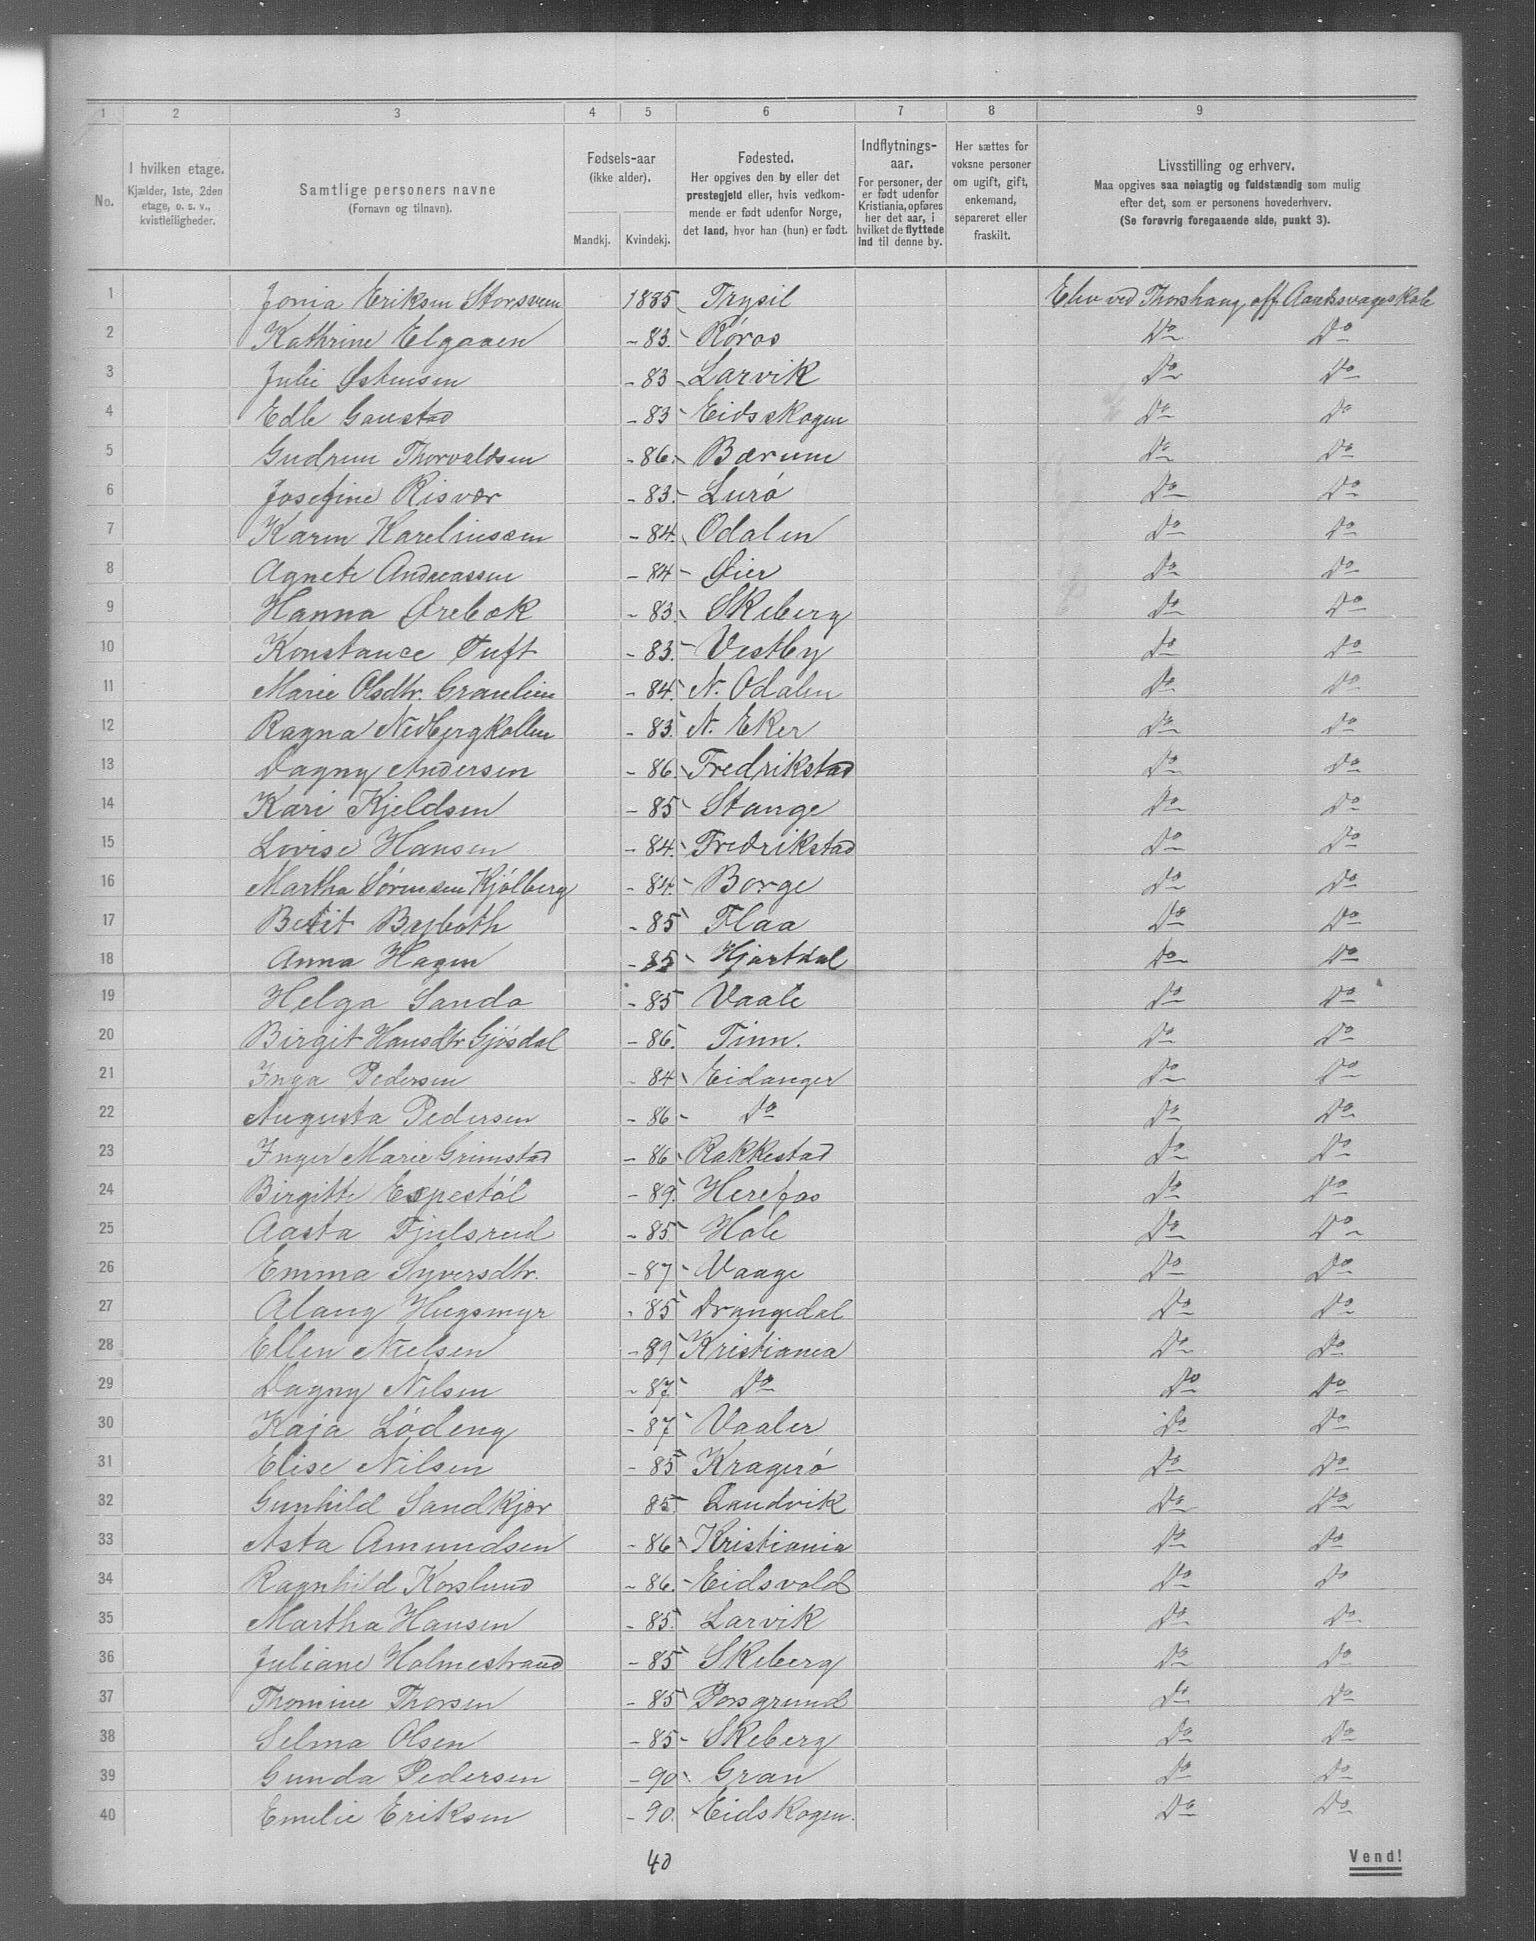 1 2 3 4 5 6 7 8 9
No.
I hvilken etage.
Kjælder, 1ste, 2den
etage, o. s. v.,
kvistleiligheder.
Samtlige personers navne
(Fornavn og tilnavn).
Fødsels-aar
(ikke alder).
Mandkj. Kvindekj.
Fødested.
Her opgives den by eller det
prestegjeld eller, hvis vedkom-
mende er født udenfor Norge,
det land, hvor han (hun) er født.
Indflytnings-
aar.
For personer, der
er født udenfor
Kristiania, opføres
her det aar, i
hvilket de flyttede
ind til denne by.
Her sættes for
voksne personer
om ugift, gift,
enkemand,
separeret eller
fraskilt.
Livsstilling og erhverv.
Maa opgives saa nøiagtig og fuldstændig som mulig
efter det, som er personens hovederhverv.
(Se forøvrig foregaaende side, punkt 3).
1 Jonia Eriksen Storsveen 1885 Trysil Elev ved Thorshaug off. Aandsvageskole
2 Kathrine Elgaaen - 83. Røros Do Do
3 Julie Østensen - 83 Larvik Do Do
4 Edle Gaustad - 83 Eidsskogen Do Do
5 Gudrun Thorvaldsen - 86. Bærum Do Do
6 Josefine Risvær - 83. Lurø Do Do
7 Karen Kareliussen - 84. Odalen Do Do
8 Agnete Andreassen - 84 Øier Do Do
9 Hanna Ørebæk - 83. Skeberg Do Do
10 Konstance Tuft - 83. Vestby Do Do
11 Marie Olsdtr. Graulien - 84. N. Odalen Do Do
12 Ragna Nedbergkollen - 83. N. Eker Do Do
13 Dagny Andersen - 86. Fredrikstad Do Do
14 Kari Kjeldsen - 85 Stange Do Do
15 Lovise Hansen - 84. Fredrikstad Do Do
16 Martha Sørensen Kjølberg - 84. Borge Do Do
17 Betit - 85 Flaa Do Do
18 Anna Hagen - 85 Hjartdal Do Do
19 Helga Sanda - 85 Vaale Do Do
20 Birgit Hansdtr Gjøsdal - 86. Tinn. Do Do
21 Inga Pedersen - 84 Eidanger Do Do
22 Augusta Pedersen - 86 - Do Do Do
23 Inger Marie Grimstad - 86 Rakkestad Do Do
24 Birgitte Espestøl - 89. Herefos Do Do
25 Aasta Fjulsrud - 85. Hole Do Do
26 Emma Syversdtr. - 87 Vaage Do Do
27 Alang Hugsmyr - 85 Drangedal Do Do
28 Ellen Nielsen - 89 Kristiania Do Do
29 Dagny Nilsen - 87 Do Do Do
30 Kaja Lødeng - 87 Vaaler Do Do
31 Elise Nilsen - 85 Kragerø Do Do
32 Gunhild Sandkjær 85. Landvik Do Do
33 Asta Amundsen - 86 Kristiania Do Do
34 Ragnhild Korslund - 86. Eidsvold Do Do
35 Martha Hansen - 85. Larvik Do Do
36 Juliane Holmestrand - 85 Skeberg Do Do
37 Thomine Thorsen - 85 Porsgrund Do Do
38 Selma Olsen - 85 - Skeberg Do Do
39 Gunda Pedersen - 90 Gran Do Do
40 Emelie Eriksen - 90. Eidskogen. Do Do
40
Vend!